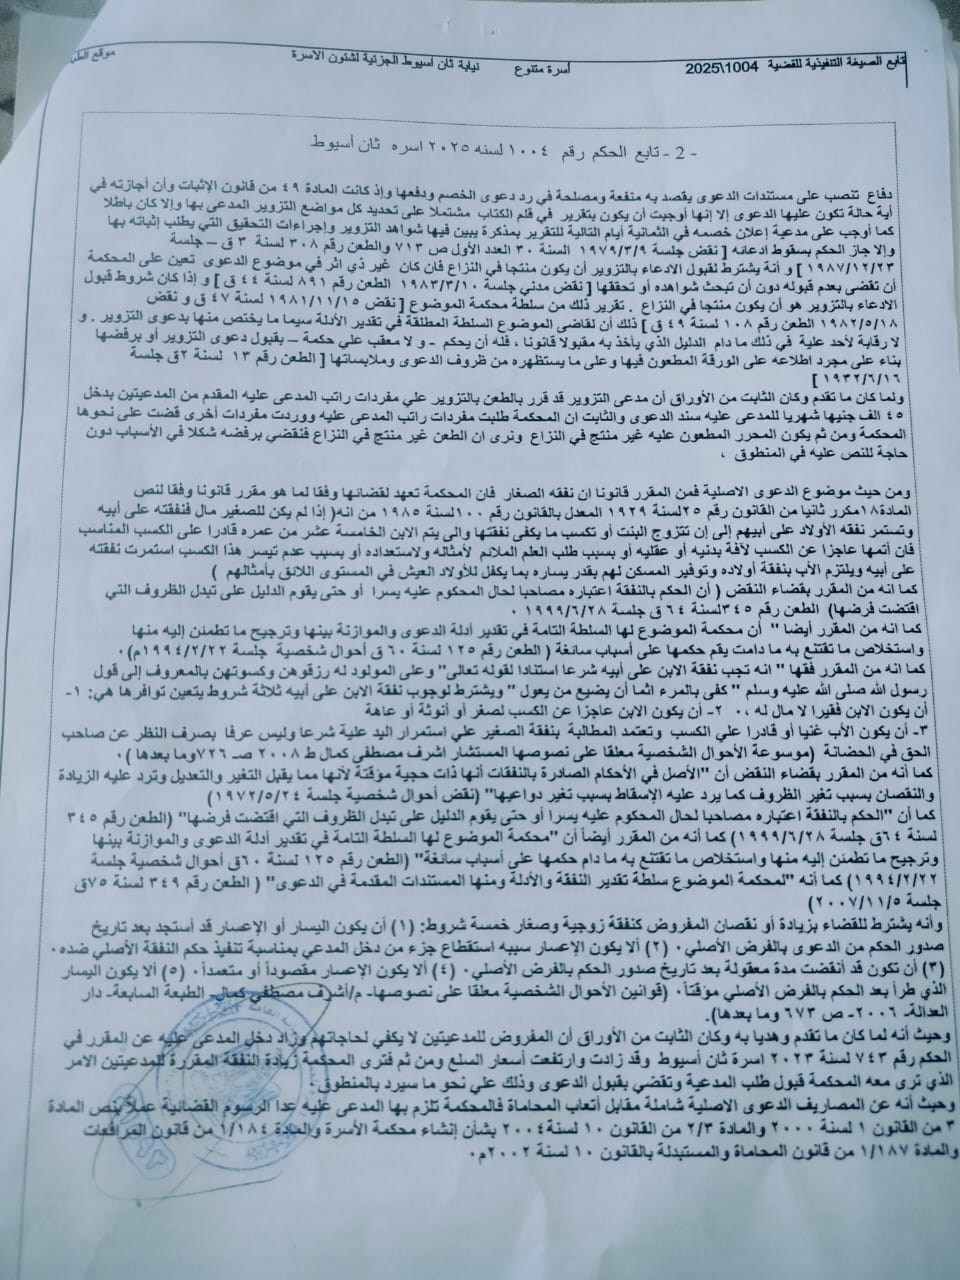 تابع الصيغة التنفيذية للقضية 1004\2025 أسرة متنوع نيابة ثان أسيوط الجزئية لشئون الأسرة موقع الطب
- 2 - تابع الحكم رقم ١٠٠٤ لسنه ٢٠٢٥ اسره ثان أسيوط
دفاع تنصب على مستندات الدعوى يقصد به منفعة ومصلحة في رد دعوى الخصم ودفعها وإذ كانت المادة ٤٩ من قانون الإثبات وأن أجازته في
أية حالة تكون عليها الدعوى إلا إنها أوجبت أن يكون بتقرير في قلم الكتاب مشتملا على تحديد كل مواضع التزوير المدعى بها وإلا كان باطلا
كما أوجب على مدعية إعلان خصمه في الثمانية أيام التالية للتقرير بمذكرة يبين فيها شواهد التزوير وإجراءات التحقيق التي يطلب إثباته بها
وإلا جاز الحكم بسقوط ادعائه [ نقض جلسة ١٩٧٩/٣/٩ السنة ٣٠ العدد الأول ص ٧١٣ والطعن رقم ٣٠٨ لسنة ٣ ق – جلسة
١٩٨٧/١٢/٢٣ ] و أنة يشترط لقبول الادعاء بالتزوير أن يكون منتجا في النزاع فان كان غير ذي اثر في موضوع الدعوى تعين على المحكمة
أن تقضى بعدم قبوله دون أن تبحث شواهده أو تحققها [ نقض مدني جلسة ١٩٨٣/٣/١٠ الطعن رقم ٨٩١ لسنة ٤٤ ق ] و إذا كان شروط قبول
الادعاء بالتزوير هو أن يكون منتجا في النزاع . تقرير ذلك من سلطة محكمة الموضوع [ نقض ١٩٨١/١١/١٥ لسنة ٤٧ ق و نقض
١٩٨٢/٥/١٨ الطعن رقم ١٠٨ لسنة ٤٩ ق ] ذلك أن لقاضى الموضوع السلطة المطلقة في تقدير الأدلة سيما ما يختص منها بدعوى التزوير . و
لا رقابة لأحد علية في ذلك ما دام الدليل الذي يأخذ به مقبولا قانونا ، فله أن يحكم - و لا معقب علي حكمة – بقبول دعوى التزوير أو برفضها
بناء على مجرد اطلاعه على الورقة المطعون فيها وعلى ما يستظهره من ظروف الدعوى وملابساتها [ الطعن رقم ١٣ لسنة ٢ق جلسة
١٩٣٢/٦/١٦ ]
ولما كان ما تقدم وكان الثابت من الأوراق أن مدعى التزوير قد قرر بالطعن بالتزوير علي مفردات راتب المدعى عليه المقدم من المدعيتين بدخل
٤٥ الف جنيها شهريا للمدعى عليه سند الدعوى والثابت ان المحكمة طلبت مفردات راتب المدعى عليه ووردت مفردات أخرى قضت على نحوها
المحكمة ومن ثم يكون المحرر المطعون عليه غير منتج في النزاع ونرى ان الطعن غير منتج في النزاع فنقضي برفضه شكلا في الأسباب دون
حاجة للنص عليه في المنطوق ،
ومن حيث موضوع الدعوى الاصلية فمن المقرر قانونا ان نفقه الصغار فان المحكمة تعهد لقضائها وفقا لما هو مقرر قانونا وفقا لنص
المادة١٨مكرر ثانيا من القانون رقم ٢٥لسنة ١٩٢٩ المعدل بالقانون رقم ١٠٠لسنة ١٩٨٥ من انه( إذا لم يكن للصغير مال فنفقته على أبيه
وتستمر نفقه الأولاد على أبيهم إلى إن تتزوج البنت أو تكسب ما يكفى نفقتها والى يتم الابن الخامسة عشر من عمره قادرا على الكسب المناسب
فان أتمها عاجزا عن الكسب لآفة بدنيه أو عقليه أو بسبب طلب العلم الملائم لأمثاله ولاستعداده أو بسبب عدم تيسر هذا الكسب استمرت نفقته
على أبيه ويلتزم الأب بنفقة أولاده وتوفير المسكن لهم بقدر يساره بما يكفل للأولاد العيش في المستوى اللائق بأمثالهم )
كما انه من المقرر بقضاء النقض ( أن الحكم بالنفقة اعتباره مصاحبا لحال المحكوم عليه يسرا أو حتى يقوم الدليل على تبدل الظروف التي
اقتضت فرضها) الطعن رقم ٣٤٥لسنة ٦٤ ق جلسة ١٩٩٩/٦/٢٨ ٠
كما انه من المقرر أيضا " أن محكمة الموضوع لها السلطة التامة في تقدير أدلة الدعوى والموازنة بينها وترجيح ما تطمئن إليه منها
واستخلاص ما تقتنع به ما دامت يقم حكمها على أسباب سائغة ( الطعن رقم ١٢٥ لسنة ٦٠ ق أحوال شخصية جلسة ١٩٩٤/٢/٢٢م)٠
كما انه من المقرر فقها " انه تجب نفقة الابن على أبيه شرعا استنادا لقوله تعالى" وعلى المولود له رزقوهن وكسوتهن بالمعروف إلى قول
رسول الله صلى الله عليه وسلم " كفى بالمرء اثما أن يضيع من يعول " ويشترط لوجوب نفقة الابن على أبيه ثلاثة شروط يتعين توافرها هي: ١-
أن يكون الابن فقيرا لا مال له ،٠ ٢- أن يكون الابن عاجزا عن الكسب لصغر أو أنوثة أو عاهة
٣- أن يكون الأب غنيا أو قادرا علي الكسب وتعتمد المطالبة بنفقة الصغير علي استمرار اليد علية شرعا وليس عرفا بصرف النظر عن صاحب
الحق في الحضانة (موسوعة الأحوال الشخصية معلقا على نصوصها المستشار اشرف مصطفى كمال ط ٢٠٠٨ صـ ٧٢٦وما بعدها )٠
كما أنه من المقرر بقضاء النقض أن "الأصل في الأحكام الصادرة بالنفقات أنها ذات حجية مؤقتة لأنها مما يقبل التغير والتعديل وترد عليه الزيادة
والنقصان بسبب تغير الظروف كما يرد عليه الإسقاط بسبب تغير دواعيها" (نقض أحوال شخصية جلسة ١٩٧٢/٥/٢٤)
كما أن "الحكم بالنفقة اعتباره مصاحبا لحال المحكوم عليه يسرا أو حتى يقوم الدليل على تبدل الظروف التي اقتضت فرضها" (الطعن رقم ٣٤٥
لسنة ٦٤ق جلسة ١٩٩٩/٦/٢٨) كما أنه من المقرر أيضاً أن "محكمة الموضوع لها السلطة التامة في تقدير أدلة الدعوى والموازنة بينها
وترجيح ما تطمئن إليه منها واستخلاص ما تقتنع به ما دام حكمها على أسباب سائغة" (الطعن رقم ١٢٥ لسنة ٦٠ق أحوال شخصية جلسة
١٩٩٤/٢/٢٢) كما أنه "لمحكمة الموضوع سلطة تقدير النفقة والأدلة ومنها المستندات المقدمة في الدعوى" ( الطعن رقم ٣٤٩ لسنة ٧٥ق
جلسة ٢٠٠٧/١١/٥)
وأنه يشترط للقضاء بزيادة أو نقصان المفروض كنفقة زوجية وصغار خمسة شروط: (١) أن يكون اليسار أو الإعسار قد أستجد بعد تاريخ
صدور الحكم من الدعوى بالفرض الأصلي٠ (٢) ألا يكون الإعسار سببه استقطاع جزء من دخل المدعي بمناسبة تنفيذ حكم النفقة الأصلي ضده٠
(٣) أن تكون قد أنقضت مدة معقولة بعد تاريخ صدور الحكم بالفرض الأصلي٠ (٤) ألا يكون الإعسار مقصوداً أو متعمداً٠ (٥) ألا يكون اليسار
الذي طرأ بعد الحكم بالفرض الأصلي مؤقتاً٠ (قوانين الأحوال الشخصية معلقا على نصوصها- م/أشرف مصطفي كمال- الطبعة السابعة- دار
العدالة- ٢٠٠٦- ص ٦٧٣ وما بعدها).
وحيث أنه لما كان ما تقدم و هديا به وكان الثابت من الأوراق أن المفروض للمدعيتين لا يكفي لحاجاتهم وزاد دخل المدعى عليه عن المقرر في
الحكم رقم ٧٤٣ لسنة ٢٠٢٣ اسرة ثان أسيوط وقد زادت وارتفعت أسعار السلع ومن ثم فترى المحكمة زيادة النفقة المقررة للمدعيتين الامر
الذي ترى معه المحكمة قبول طلب المدعية وتقضي بقبول الدعوى وذلك علي نحو ما سيرد بالمنطوق٠
وحيث أنه عن المصاريف الدعوى الاصلية شاملة مقابل أتعاب المحاماة فالمحكمة تلزم بها المدعى عليه عدا الرسوم القضائية عملا بنص المادة
٣ من القانون ١ لسنة ٢٠٠٠ والمادة ٢/٣ من القانون ١٠ لسنة ٢٠٠٤ بشأن إنشاء محكمة الأسرة والمادة ١/١٨٤ من قانون المرافعات
والمادة ١/١٨٧ من قانون المحاماة والمستبدلة بالقانون ١٠ لسنة ٢٠٠٢م٠